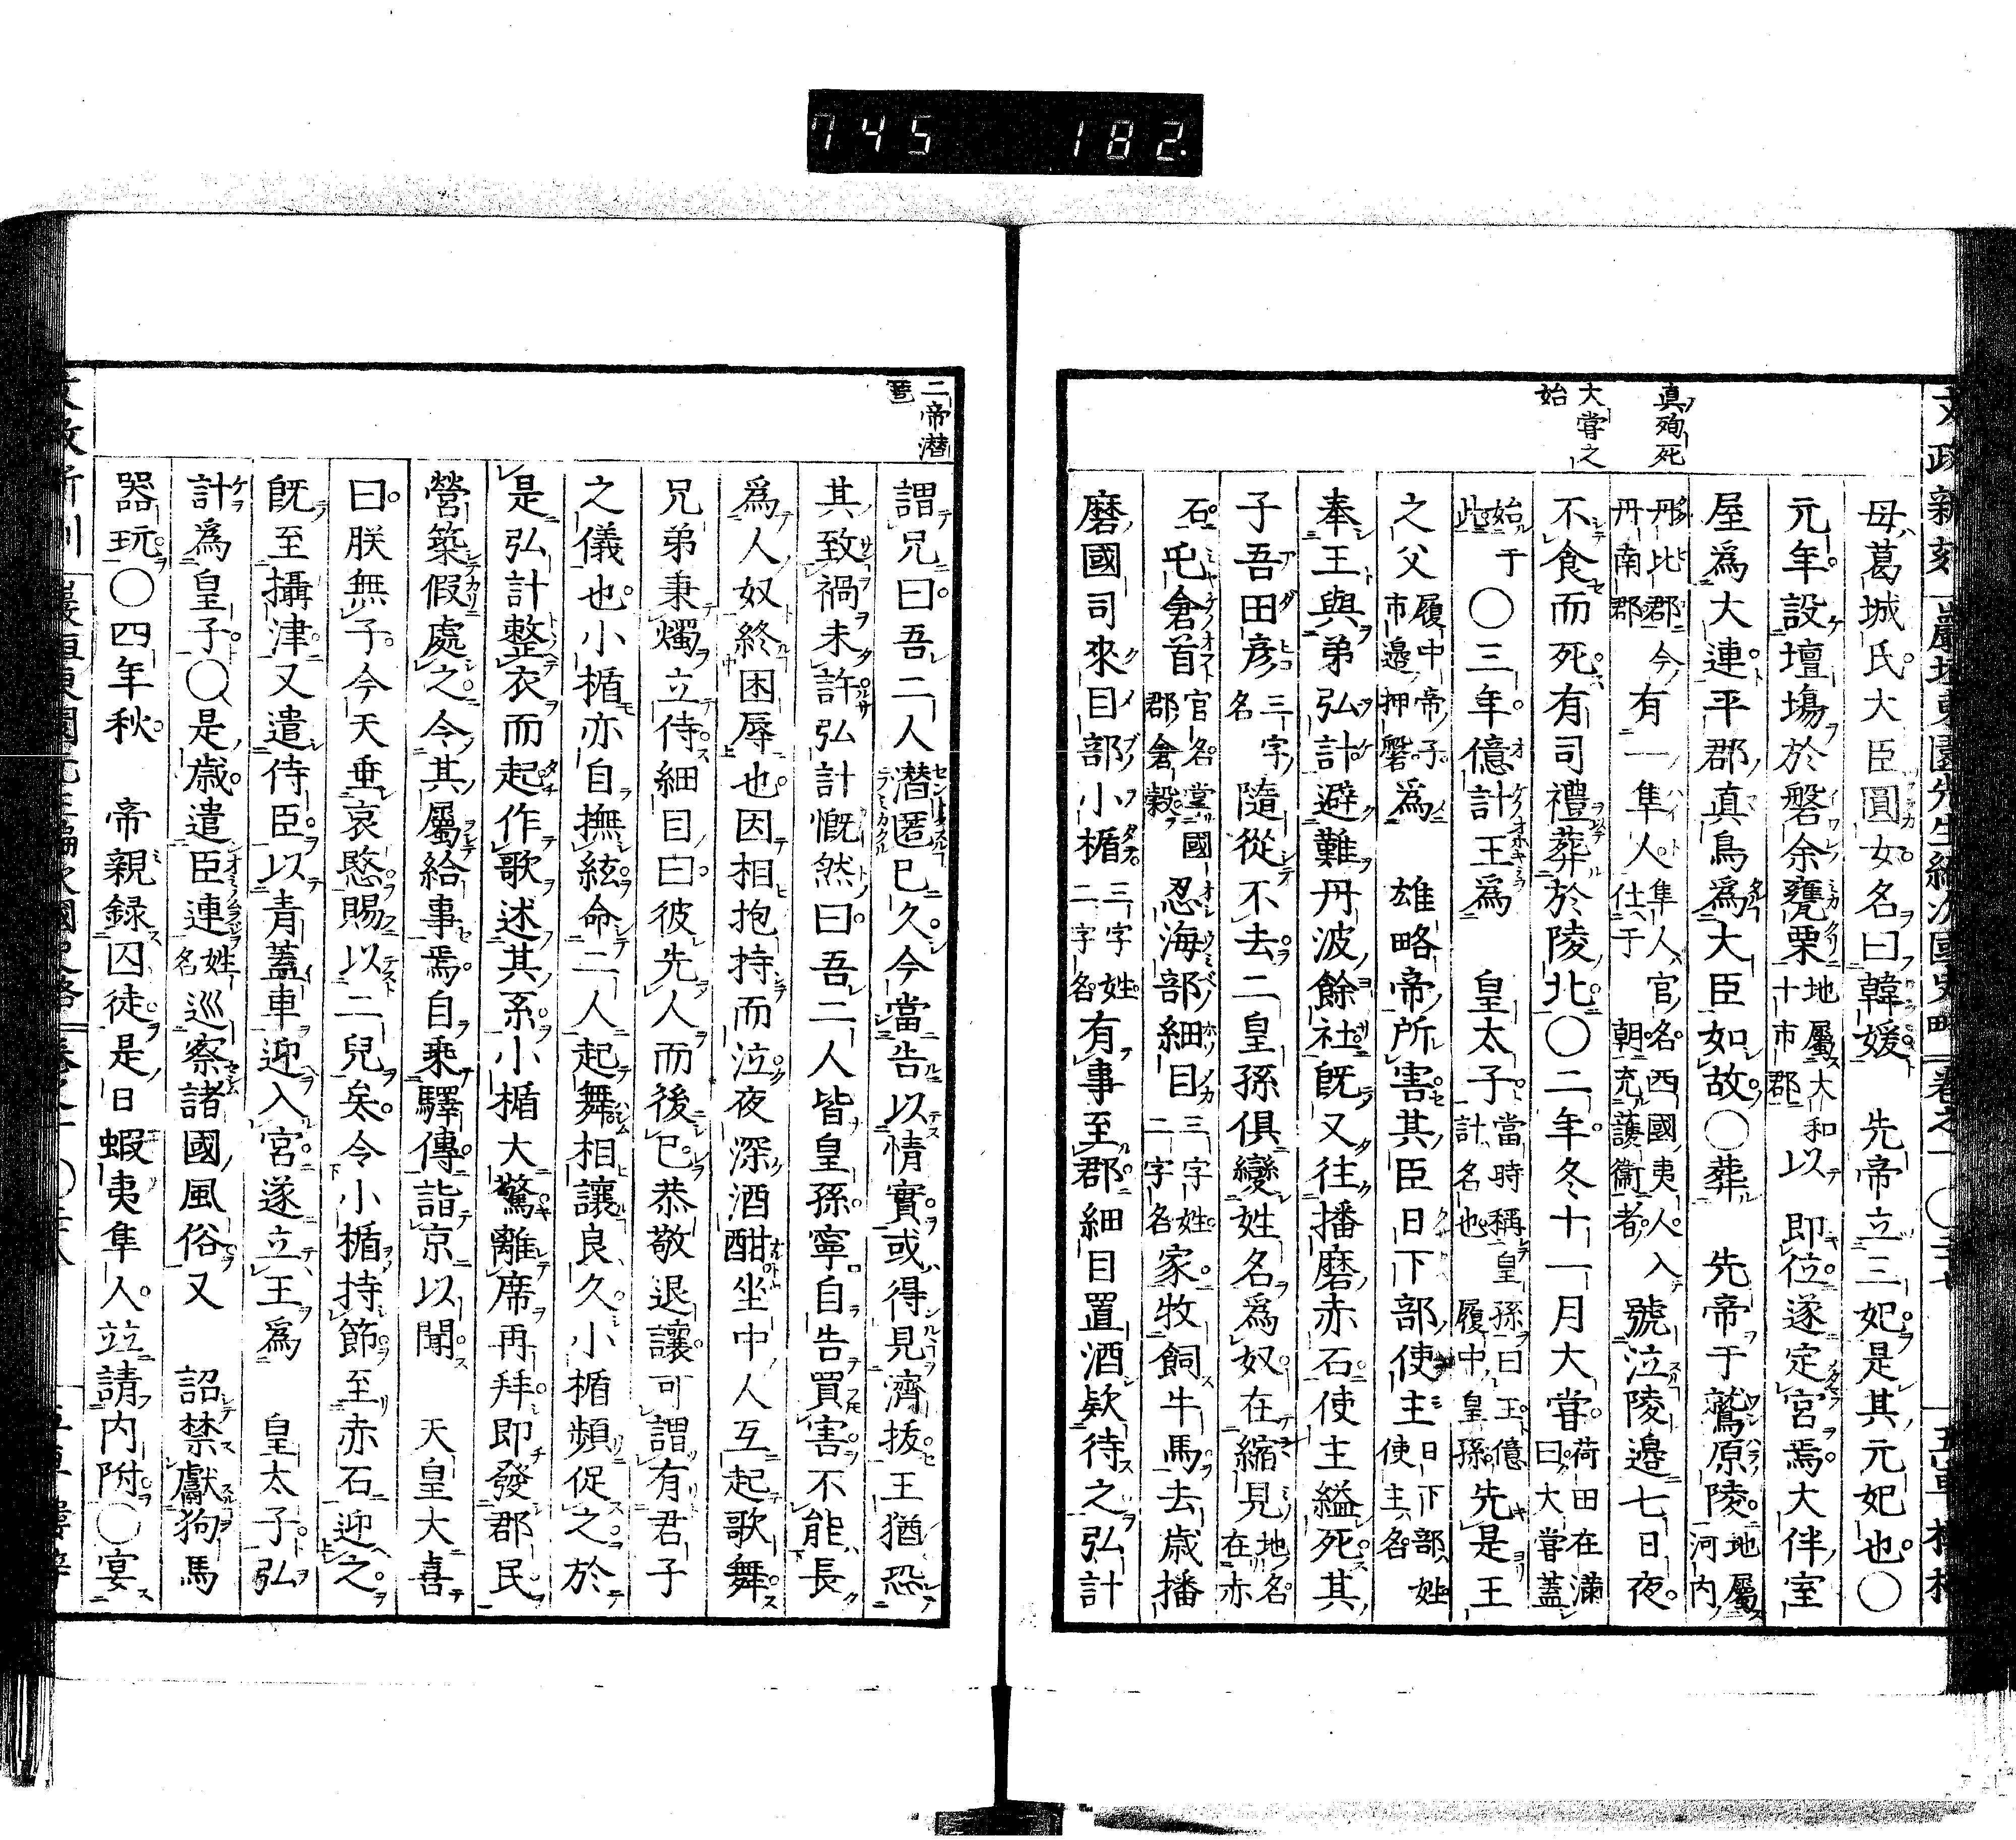 745 182.
真殉死
大甞之
始
母葛城氏大臣圓女名曰韓媛 先帝立三妃是其元妃也〇
元年設壇場於磐余甕栗地屬大和十市郡以 即位遂定宮焉大伴室
屋爲大連平郡真鳥爲大臣如故〇葬 先帝于鷲原陵地屬河内
丹比郡今丹南郡有一隼人隼人官名西國夷人入仕于朝充護衞者號泣陵邊七日夜
不食而死有司禮葬於陵北〇二年冬十一月大甞荷田在滿曰大甞蓋
始于此〇三年億計王爲 皇太子當時稱皇孫曰王億計名也履中皇孫先是王
之父履中帝子市邊押磐爲 雄略帝所害其臣日下部使主日下部姓使主名
奉王與弟弘計避難丹波餘社既又往播磨赤石使主縊死其
子吾田彦三字名隨從不去二皇孫俱變姓名爲奴在縮見地名在赤
石屯倉首官名掌國郡倉穀忍海部細目三字姓二字名家牧飼牛馬去歲播
磨國司來目部小楯三字姓二字名有事至郡細目置酒欵待之弘計
二帝潛
謂兄曰吾二人潛匿已久今當告以情實或得見濟拔王猶恐
其致禍未許弘計慨然曰吾二人皆皇孫寧自告買害不能長
爲人奴終困辱也因相抱持而泣夜深酒酣坐中人互起歌舞
兄弟秉燭立侍細目曰彼先人而後已恭敬退讓可謂有君子
之儀也小楯亦自撫絃命二人起舞相讓良久小楯頻促之於
是弘計整衣而起作歌述其系小楯大驚離席再拜即發郡民
營築假處之令其屬給事焉自乘驛傳詣京以聞 天皇大喜
曰朕無子今天垂哀愍賜以二兒矣令小楯持節至赤石迎之
既至攝津又遣侍臣以青蓋車迎入宮遂立王爲 皇太子弘
計爲皇子〇是歲遣臣連姓名巡察諸國風俗又 詔禁獻狗馬
器玩〇四年秋 帝親録囚徒是日蝦夷隼人竝請内附〇宴